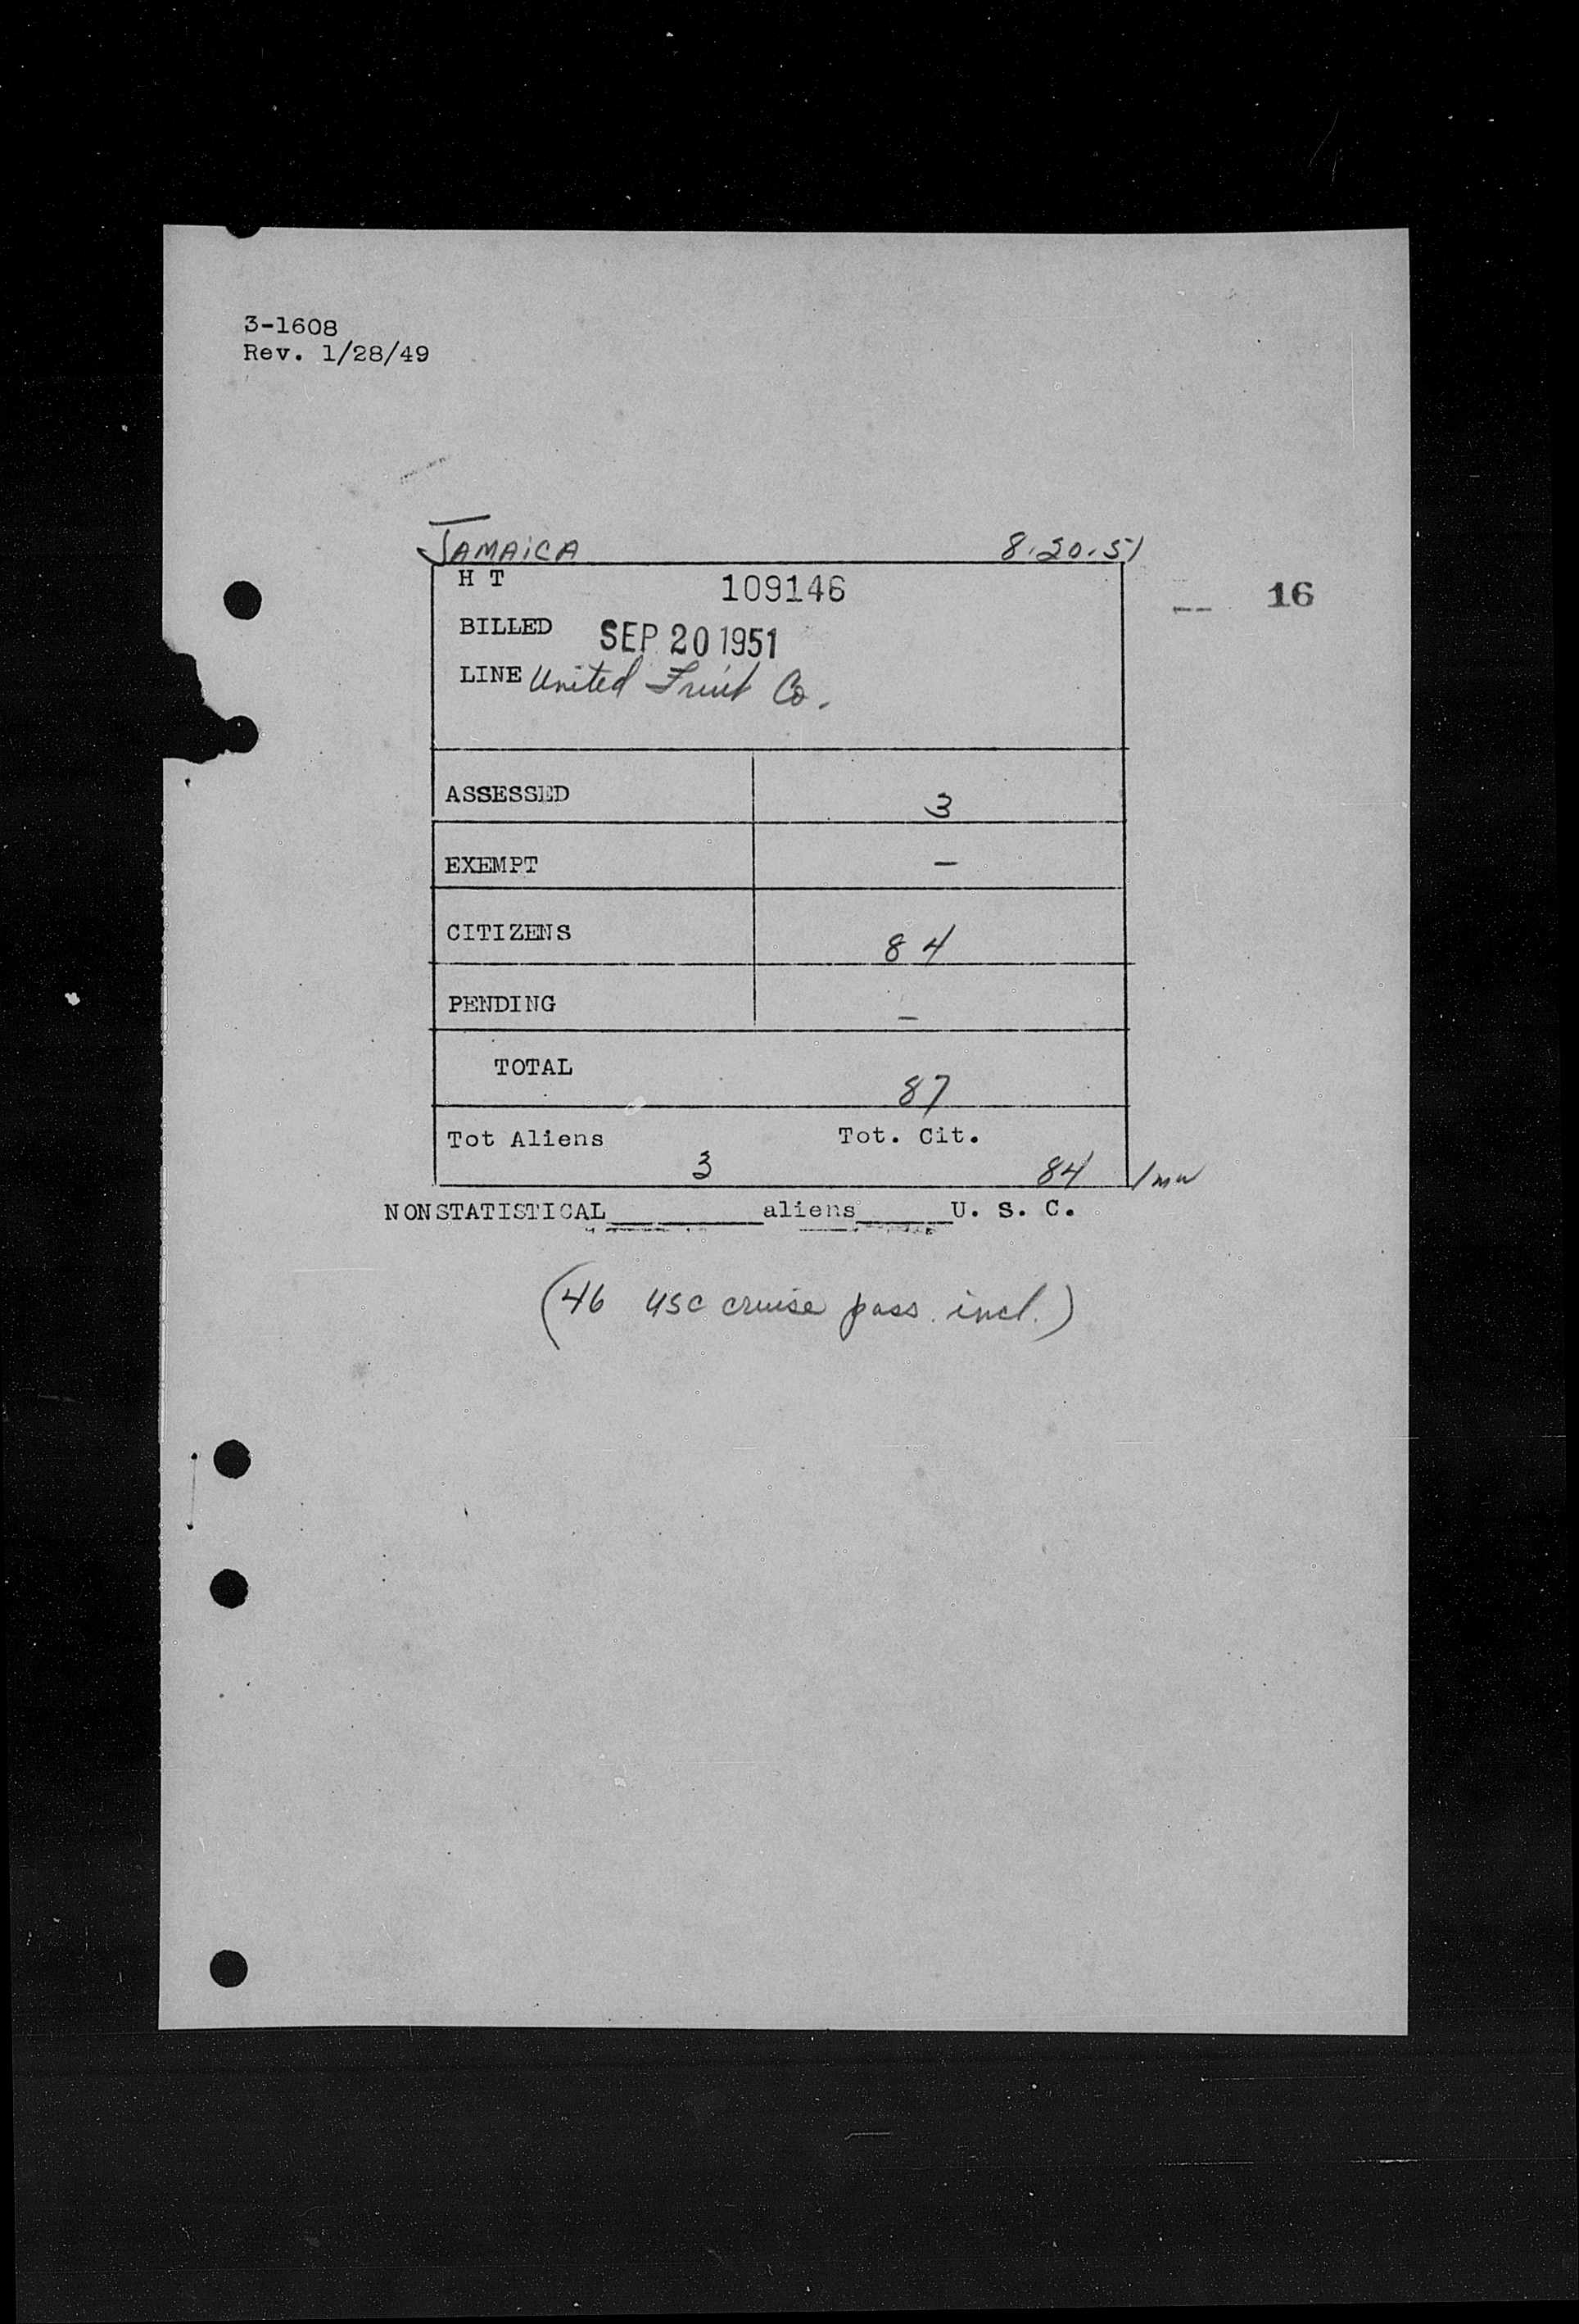 3-1608
Rev. 1/28/49
JAMAICA 8.20.51
H T 109146
16
BILLED SEP 20 1951
LINE United Fruit Co.
ASSESSED 3
EXEMPT –
CITIZENS 84
PENDING –
TOTAL 87
Tot Aliens 3 Tot. Cit. 84
NONSTATISTICAL______aliens______U. S. C.
(46 USC cruise pass. incl.)